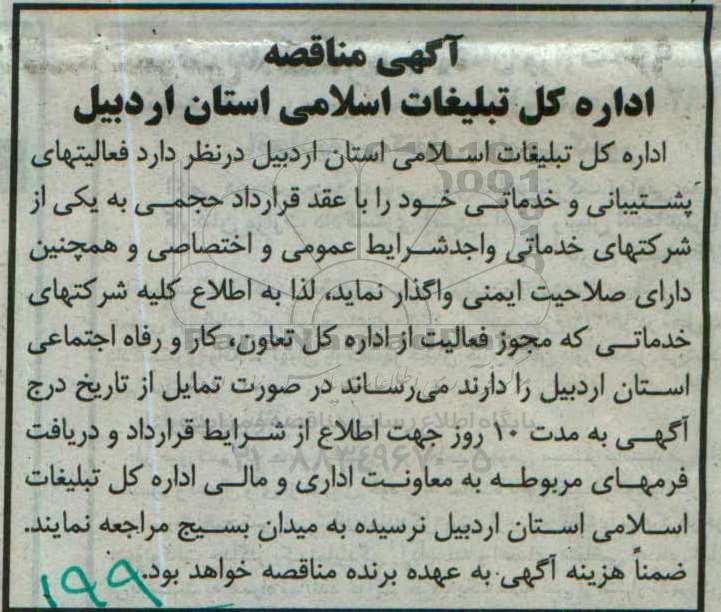 آگهی مناقصه
اداره کل تبلیغات اسلامی استان اردبیل
اداره کل تبلیغات اسلامی استان اردبیل درنظر دارد فعالیتهای
پشتیبانی و خدماتی خود را با عقد قرارداد حجمی به یکی از
شرکتهای خدماتی واجدشرایط عمومی و اختصاصی و همچنین
دارای صلاحیت ایمنی واگذار نماید، لذا به اطلاع کلیه شرکتهای
خدماتی که مجوز فعالیت از اداره کل تعاون، کار و رفاه اجتماعی
استان اردبیل را دارند می‌رساند در صورت تمایل از تاریخ درج
آگهی به مدت ۱۰ روز جهت اطلاع از شرایط قرارداد و دریافت
فرمهای مربوطه به معاونت اداری و مالی اداره کل تبلیغات
اسلامی استان اردبیل نرسیده به میدان بسیج مراجعه نمایند.
ضمناً هزینه آگهی به عهده برنده مناقصه خواهد بود.
۱۹۹
۰۲۱-۸۸۳۴۹۶۷۰-۵